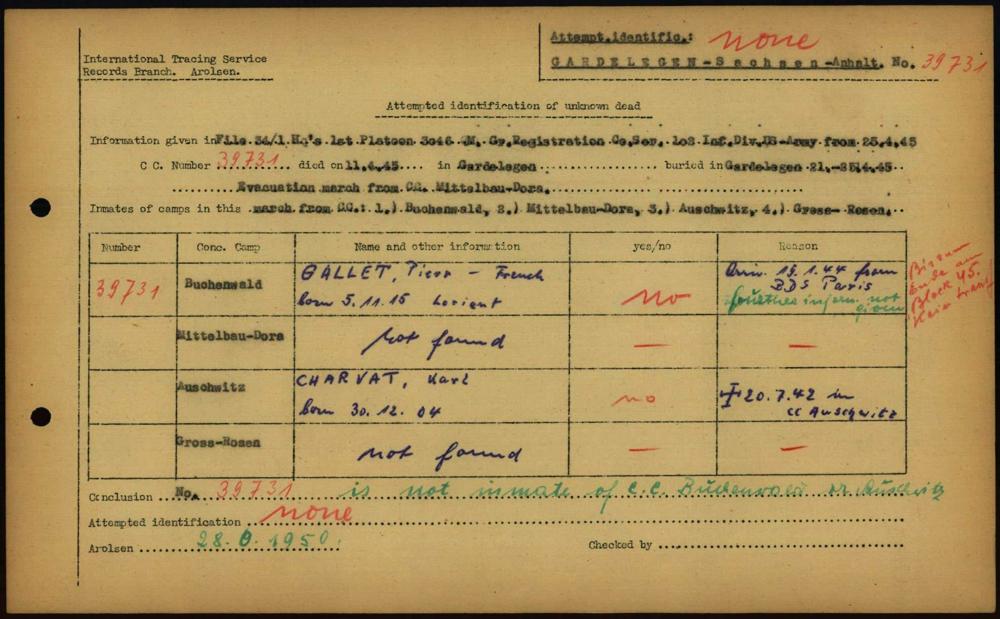 Attempt.identific.: none
International Tracing Service
Records Branch. Arolsen.
GARDELEGEN-Sachsen-Anhalt. No. 39731
Attempted identification of unknown dead
Information given in File 34/1 Hq's 1st Platoon 3046 QM. Gr.Registration Co.Ser. 102 Inf.Div.US-Army from 25.4.45
C C. Number 39731 died on 11.4.45 in Gardelegen buried in Gardelegen 21.-25.4.45
Evacuation march from CC. Mittelbau-Dora.
Inmates of camps in this march from CC.: 1.) Buchenwald, 2.) Mittelbau-Dora, 3.) Auschwitz, 4.) Gross-Rosen.
Number Conc. Camp Name and other information yes/no Reason
39731 Buchenwald GALLET, Pierr - French
born 5.11.15 Lorient no
19.1.44 from
BDS Paris
not
given
Block 45.
Mittelbau-Dora not found — —
Auschwitz CHARVAT, Karl
born 30.12.04 no 20.7.42 in
CC Auschwitz
Gross-Rosen not found — —
Conclusion No. 39731 is not inmate of C.C. Buchenwald or Auschwitz
Attempted identification none
Arolsen 1950.
Checked by